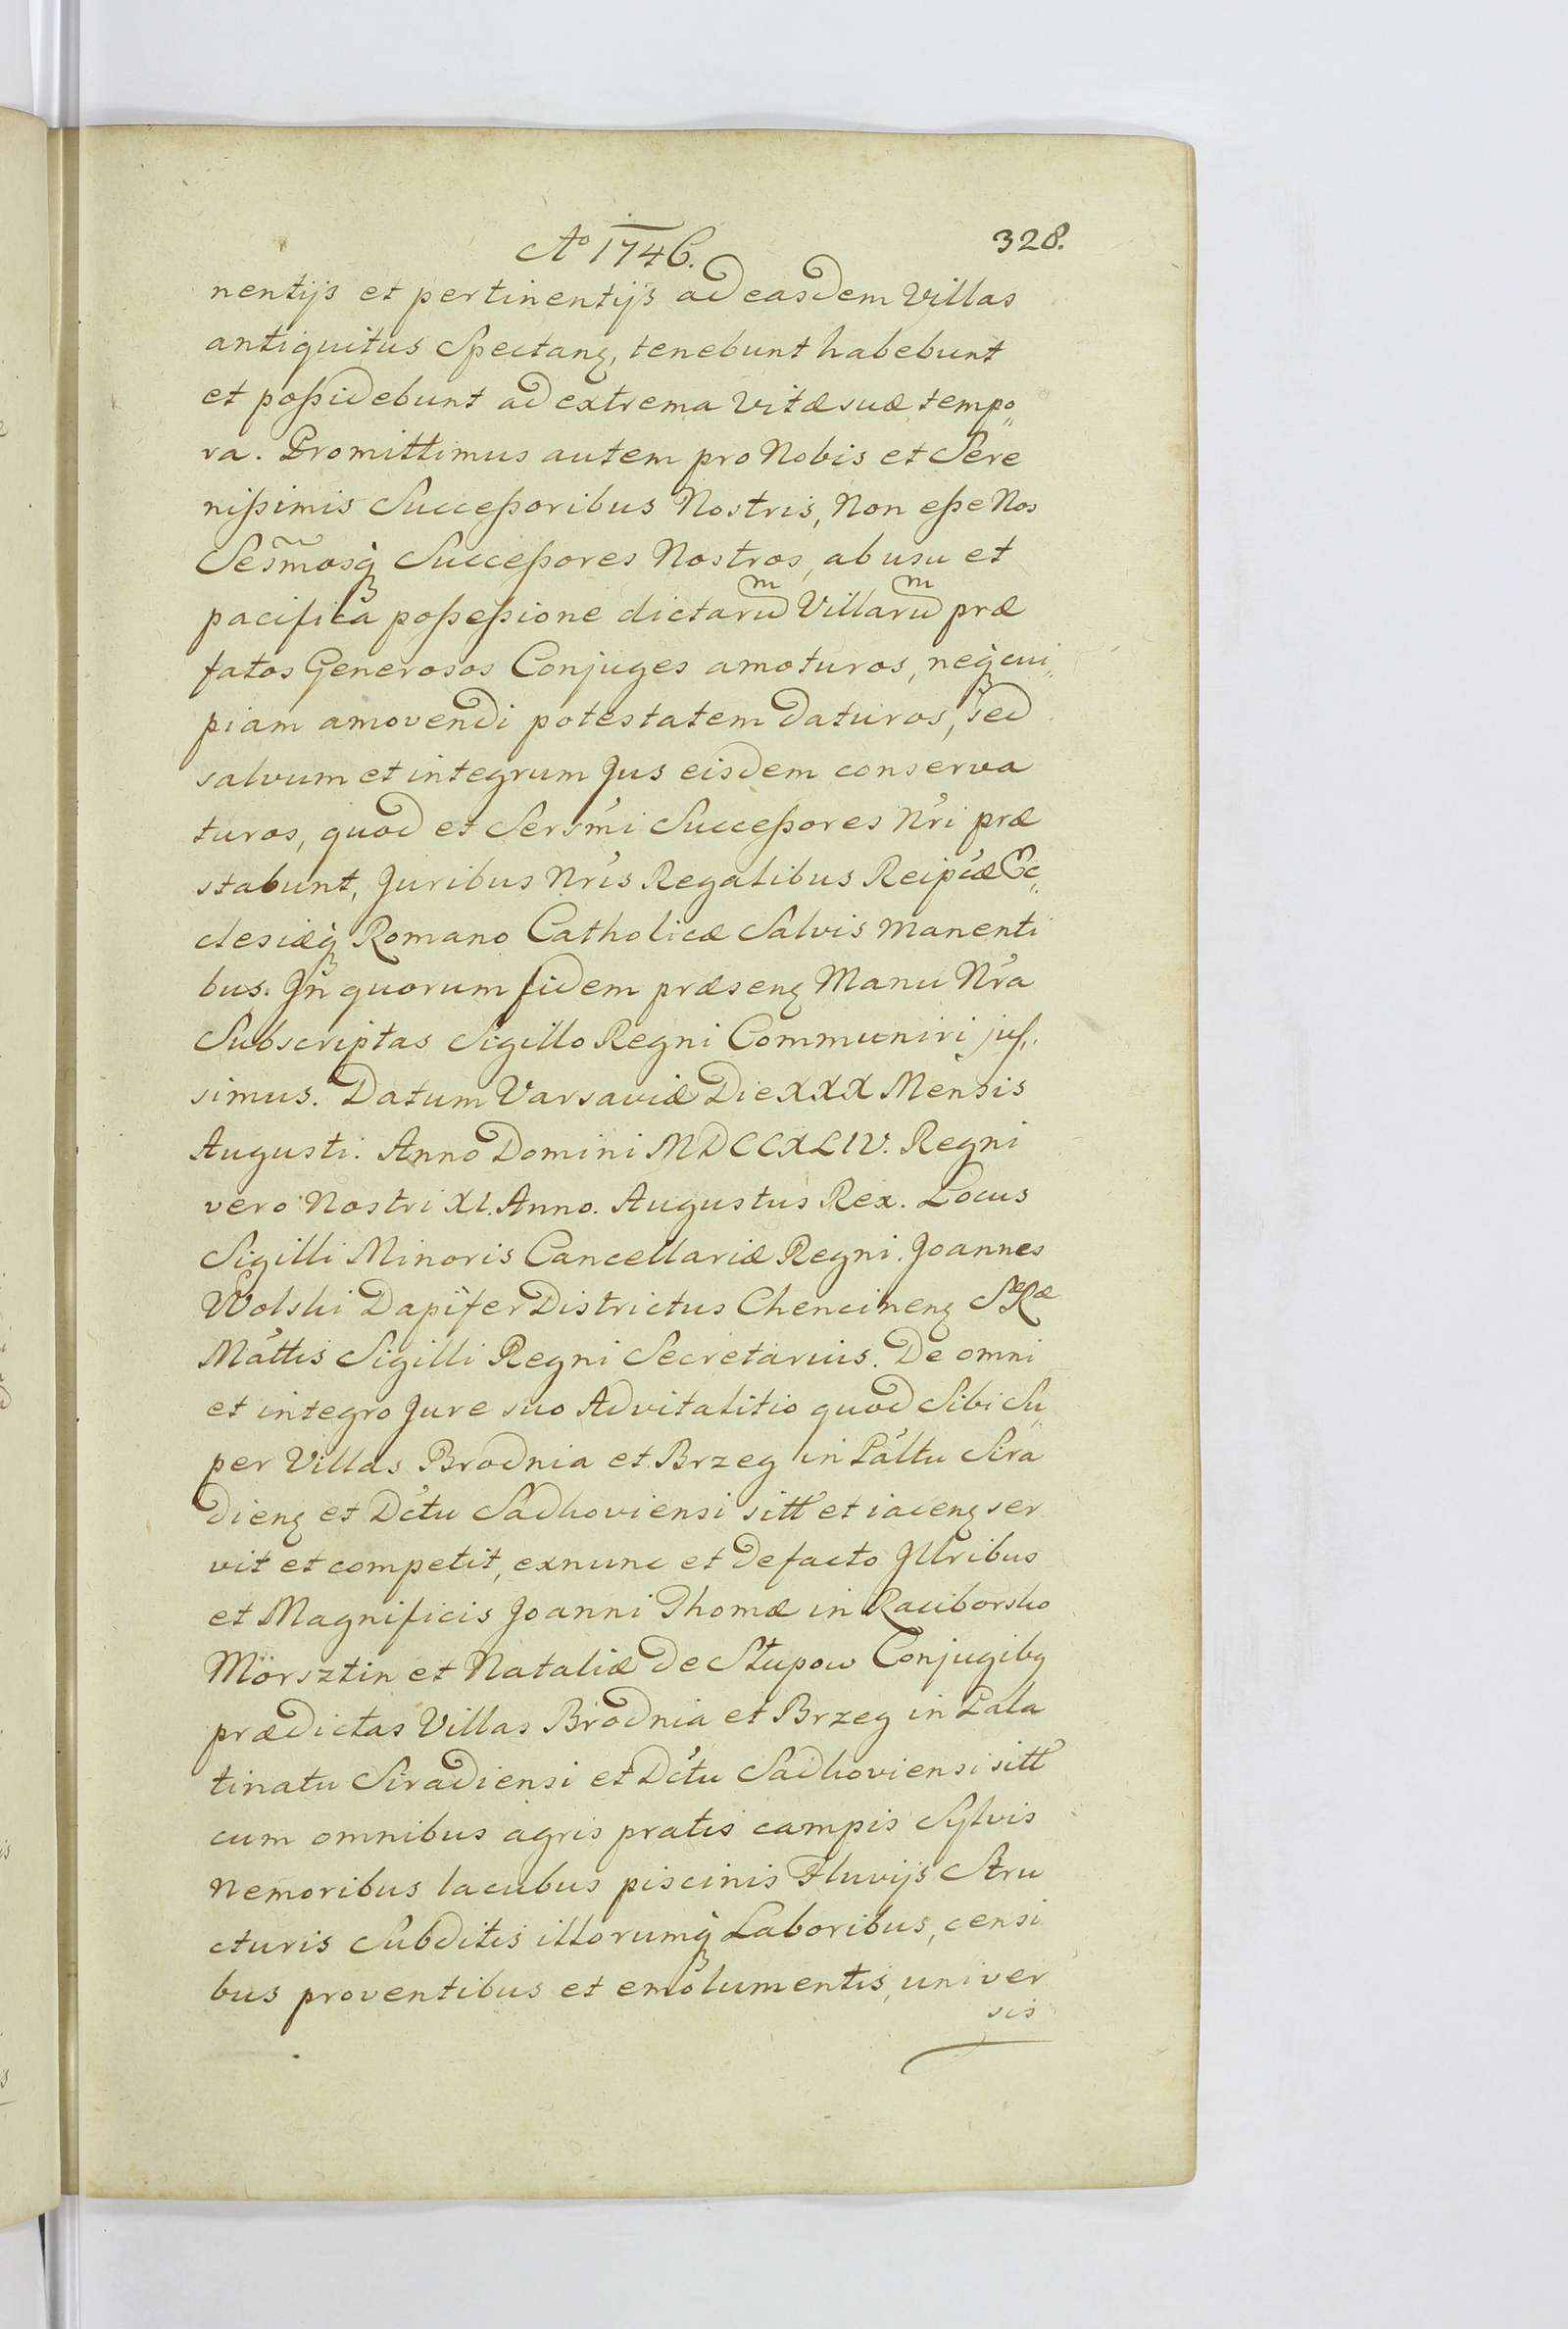 Aº 1746.
328.
nentijs et pertinentijs ad easdem Villas
antiquitus Spectanꝫ, tenebunt habebunt
et poßidebunt ad extrema Vitæ suæ tempo„
ra. Promittimus autem pro Nobis et Sere
nißimis Succeßoribus Nostris, Non eße Nos
Sersm̃osqꝫ Succeßores Nostros, ab usu et
pacifica poßeßione dictaruᵐ Villaruᵐ præ
fatos Generosos Conjuges amoturos, neqꝫ cui„
piam amovendi potestatem daturos, sed
salvum et integrum Jus eisdem conserva
turos, quod et Sersm̃i Succeßores Nr̃i præ
stabunt, Juribus Nr̃is Regalibus Reip̃cæ Ec„
clesiæqꝫ Romano Catholicæ Salvis manenti
bus. In quorum fidem præsenꝫ Manu Nr̃a
Subscriptas Sigillo Regni Communiri jus„
simus. Datum Varsaviæ Die XXX Mensis
Augusti. Anno Domini MDCCXLIV. Regni
vero Nostri XI. Anno. Augustus Rex. Locus
Sigilli Minoris Cancellariæ Regni. Joannes
Wolski Dapifer Districtus Chencinenꝫ Sᵃᵉ Rᵃᵉ
Mattis Sigilli Regni Secretarius. De omni
et integro Jure suo Advitalitio quod Sibi Su„
per Villas Brodnia et Brzeg in Palt̃u Sira
dienꝫ et Dc̃tu Sadkoviensi sitt̃ et iacenꝫ ser
vit et competit, exnunc et de facto Jllribus
et Magnificis Joanni Thomæ in Raciborsko
Morsztin et Nataliæ de Słupow Conjugibꝫ
prædictas Villas Brodnia et Brzeg in Pala
tinatu Siradiensi et Dc̃tu Sadkoviensi sitt̃
cum omnibus agris pratis campis Sylvis
Nemoribus lacubus piscinis Fluvijs Stru
cturis Subditis illorumqꝫ Laboribus, censi
bus proventibus et emolumentis, univer
sis